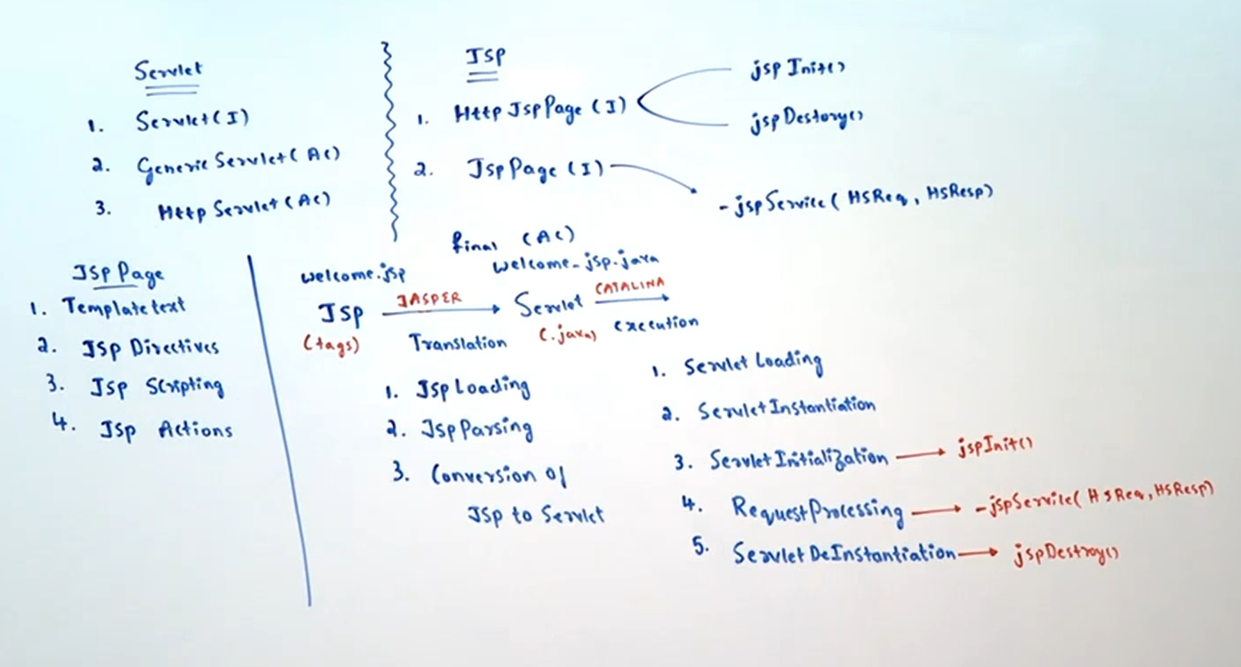 Servlet
1. Servlet(I)
2. Generic Servlet(AC)
3. Http Servlet(AC)
JSP
1. Http JspPage(I)
jspInit()
jspDestory()
2. JspPage(I)
-jspService(HSReq, HSResp)
JspPage
1. Template text
2. JSP Directives
3. Jsp Scripting
4. Jsp Actions
final (AC)
welcome.jsp welcome_jsp.java
JSP JASPER Servlet CATALINA
(tags) Translation (.java) execution
1. JspLoading
2. JspParsing
3. Conversion of
Jsp to Servlet
1. Servlet Loading
2. Servlet Instantiation
3. Servlet Initialization jspInit()
4. RequestProcessing -jspService(HSReq, HSResp)
5. Servlet DeInstantiation jspDestroy()